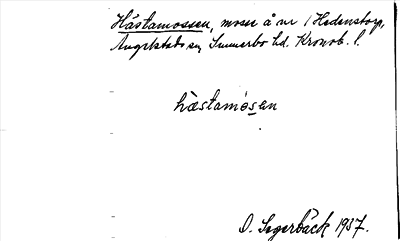 Hästamossen, mosse å nr 1 Hedenstorp,
Angelstads sn, Sunnerbo hd. Kronob. l.
hàstamósen
O. Segerbäck 1937.